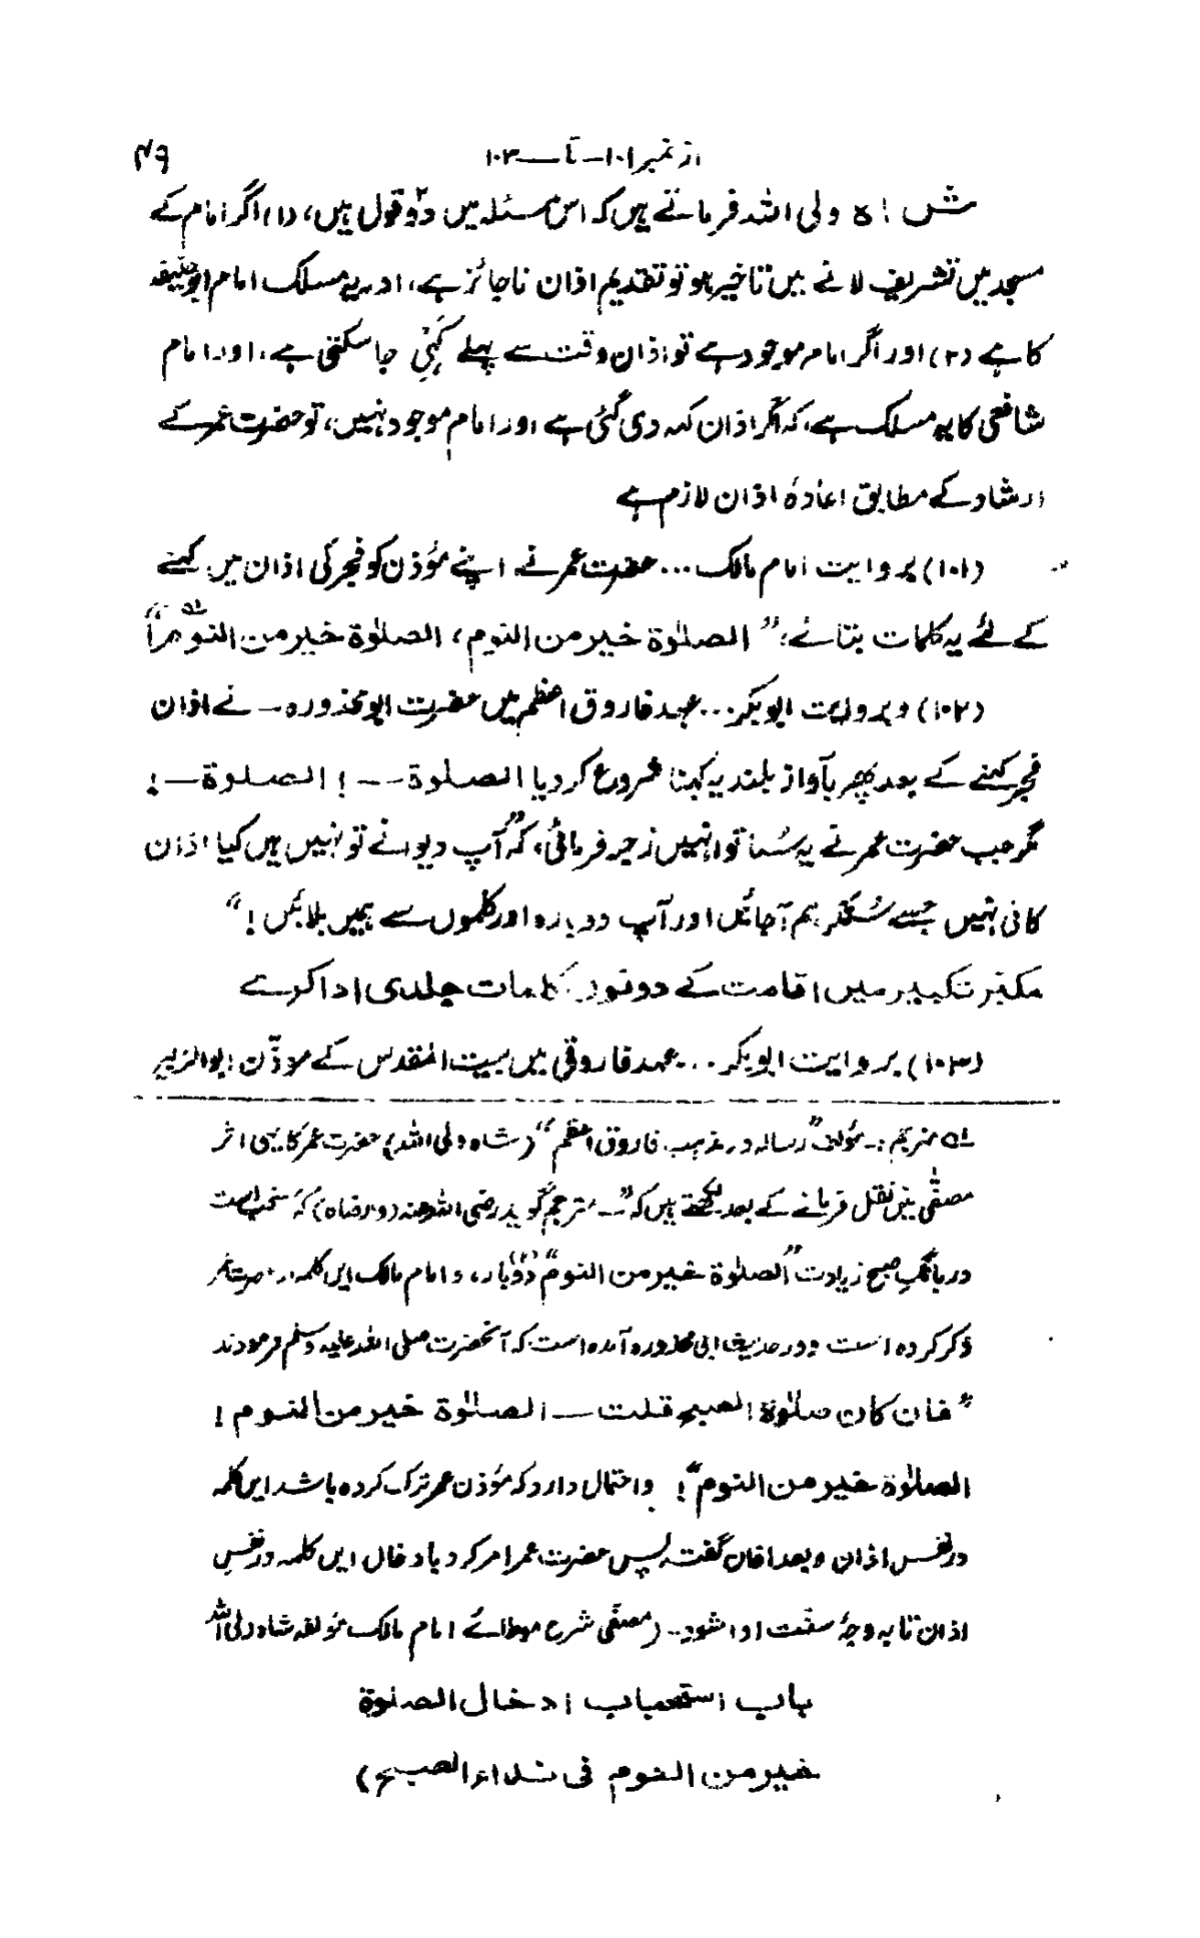 از نمبر ۱۰۱ – تا — ۱۰۳
۴۹
شاہ ولی اللہ فرماتے ہیں کہ اس مسئلہ میں دو قول ہیں، (۱) اگر امام کے
مسجد میں تشریف لانے میں تاخیر ہو تو تقدیم اذان ناجائز ہے، اور یہ مسلک امام ابو حنیفہ
کا ہے (۲) اور اگر امام موجود ہے تو اذان وقت سے پہلے کہی جا سکتی ہے، اور امام
شافعی کا یہ مسلک ہے، کہ اگر اذان کہہ دی گئی ہے اور امام موجود نہیں، تو حضرت عمر کے
ارشاد کے مطابق اعادۂ اذان لازم ہے
(۱۰۱) بروایت امام مالک ... حضرت عمر نے اپنے مؤذن کو فجر کی اذان میں کہنے
کے لئے یہ کلمات بتائے: ” الصلوٰۃ خیر من النوم، الصلوٰۃ خیر من النوم
(۱۰۲) و بروایت ابو بکر ... عہد فاروق اعظم میں حضرت ابو محذورہ – نے اذان
فجر کہنے کے بعد پھر بآواز بلند یہ کہنا شروع کر دیا الصلوۃ – – ! الصلوۃ – !
مگر جب حضرت عمر نے یہ سُنا تو انہیں زجر فرمائی، کہ ”آپ دیوانے تو نہیں ہیں کیا اذان
کافی نہیں جسے سُنکر ہم آجائیں اور آپ دوبارہ اور کلموں سے ہمیں بلائیں ! “
مکبر تکبیر میں اقامت کے دونوں کلمات جلدی ادا کرے
(۱۰۳) بروایت ابو بکر ... عہد فاروقی میں بیت المقدس کے موذّن ابوالزبیر
لہ مترجم :- مؤلف ”رسالہ در مذہب فاروق اعظم“ (شاہ ولی اللہ) حضرت عمر کا یہی اثر
مصفّٰی میں نقل فرمانے کے بعد لکھتے ہیں کہ ”– مترجم گوید رضی اللہ عنہ (و ارضاہ) کہ مستحب است
در بانگ صبح زیادت ”الصلوٰۃ خیر من النوم“ دو بار، و امام مالک ایں کلمہ از حضرت عمر
ذکر کردہ است و در حدیث ابی محذورہ آمدہ است کہ آنحضرت صلی اللہ علیہ وسلم فرمودند
” فان کان صلوٰۃ الصبح قلت – الصلوٰۃ خیر من النوم !
الصلوٰۃ خیر من النوم“ ! و احتمال دارد کہ مؤذن عمر ترک کردہ باشد ایں کلمہ
در نفس اذان و بعد اذان گفت پس حضرت عمر امر کرد باد خال ایں کلمہ در نفس
اذان تا بہ وجہ سنّت ادا شود – (مصفّٰی شرح موطائے امام مالک مؤلفہ شاہ ولی اللہ
باب استحباب ادخال الصلوٰۃ
خیر من النوم فی نداء الصبح)